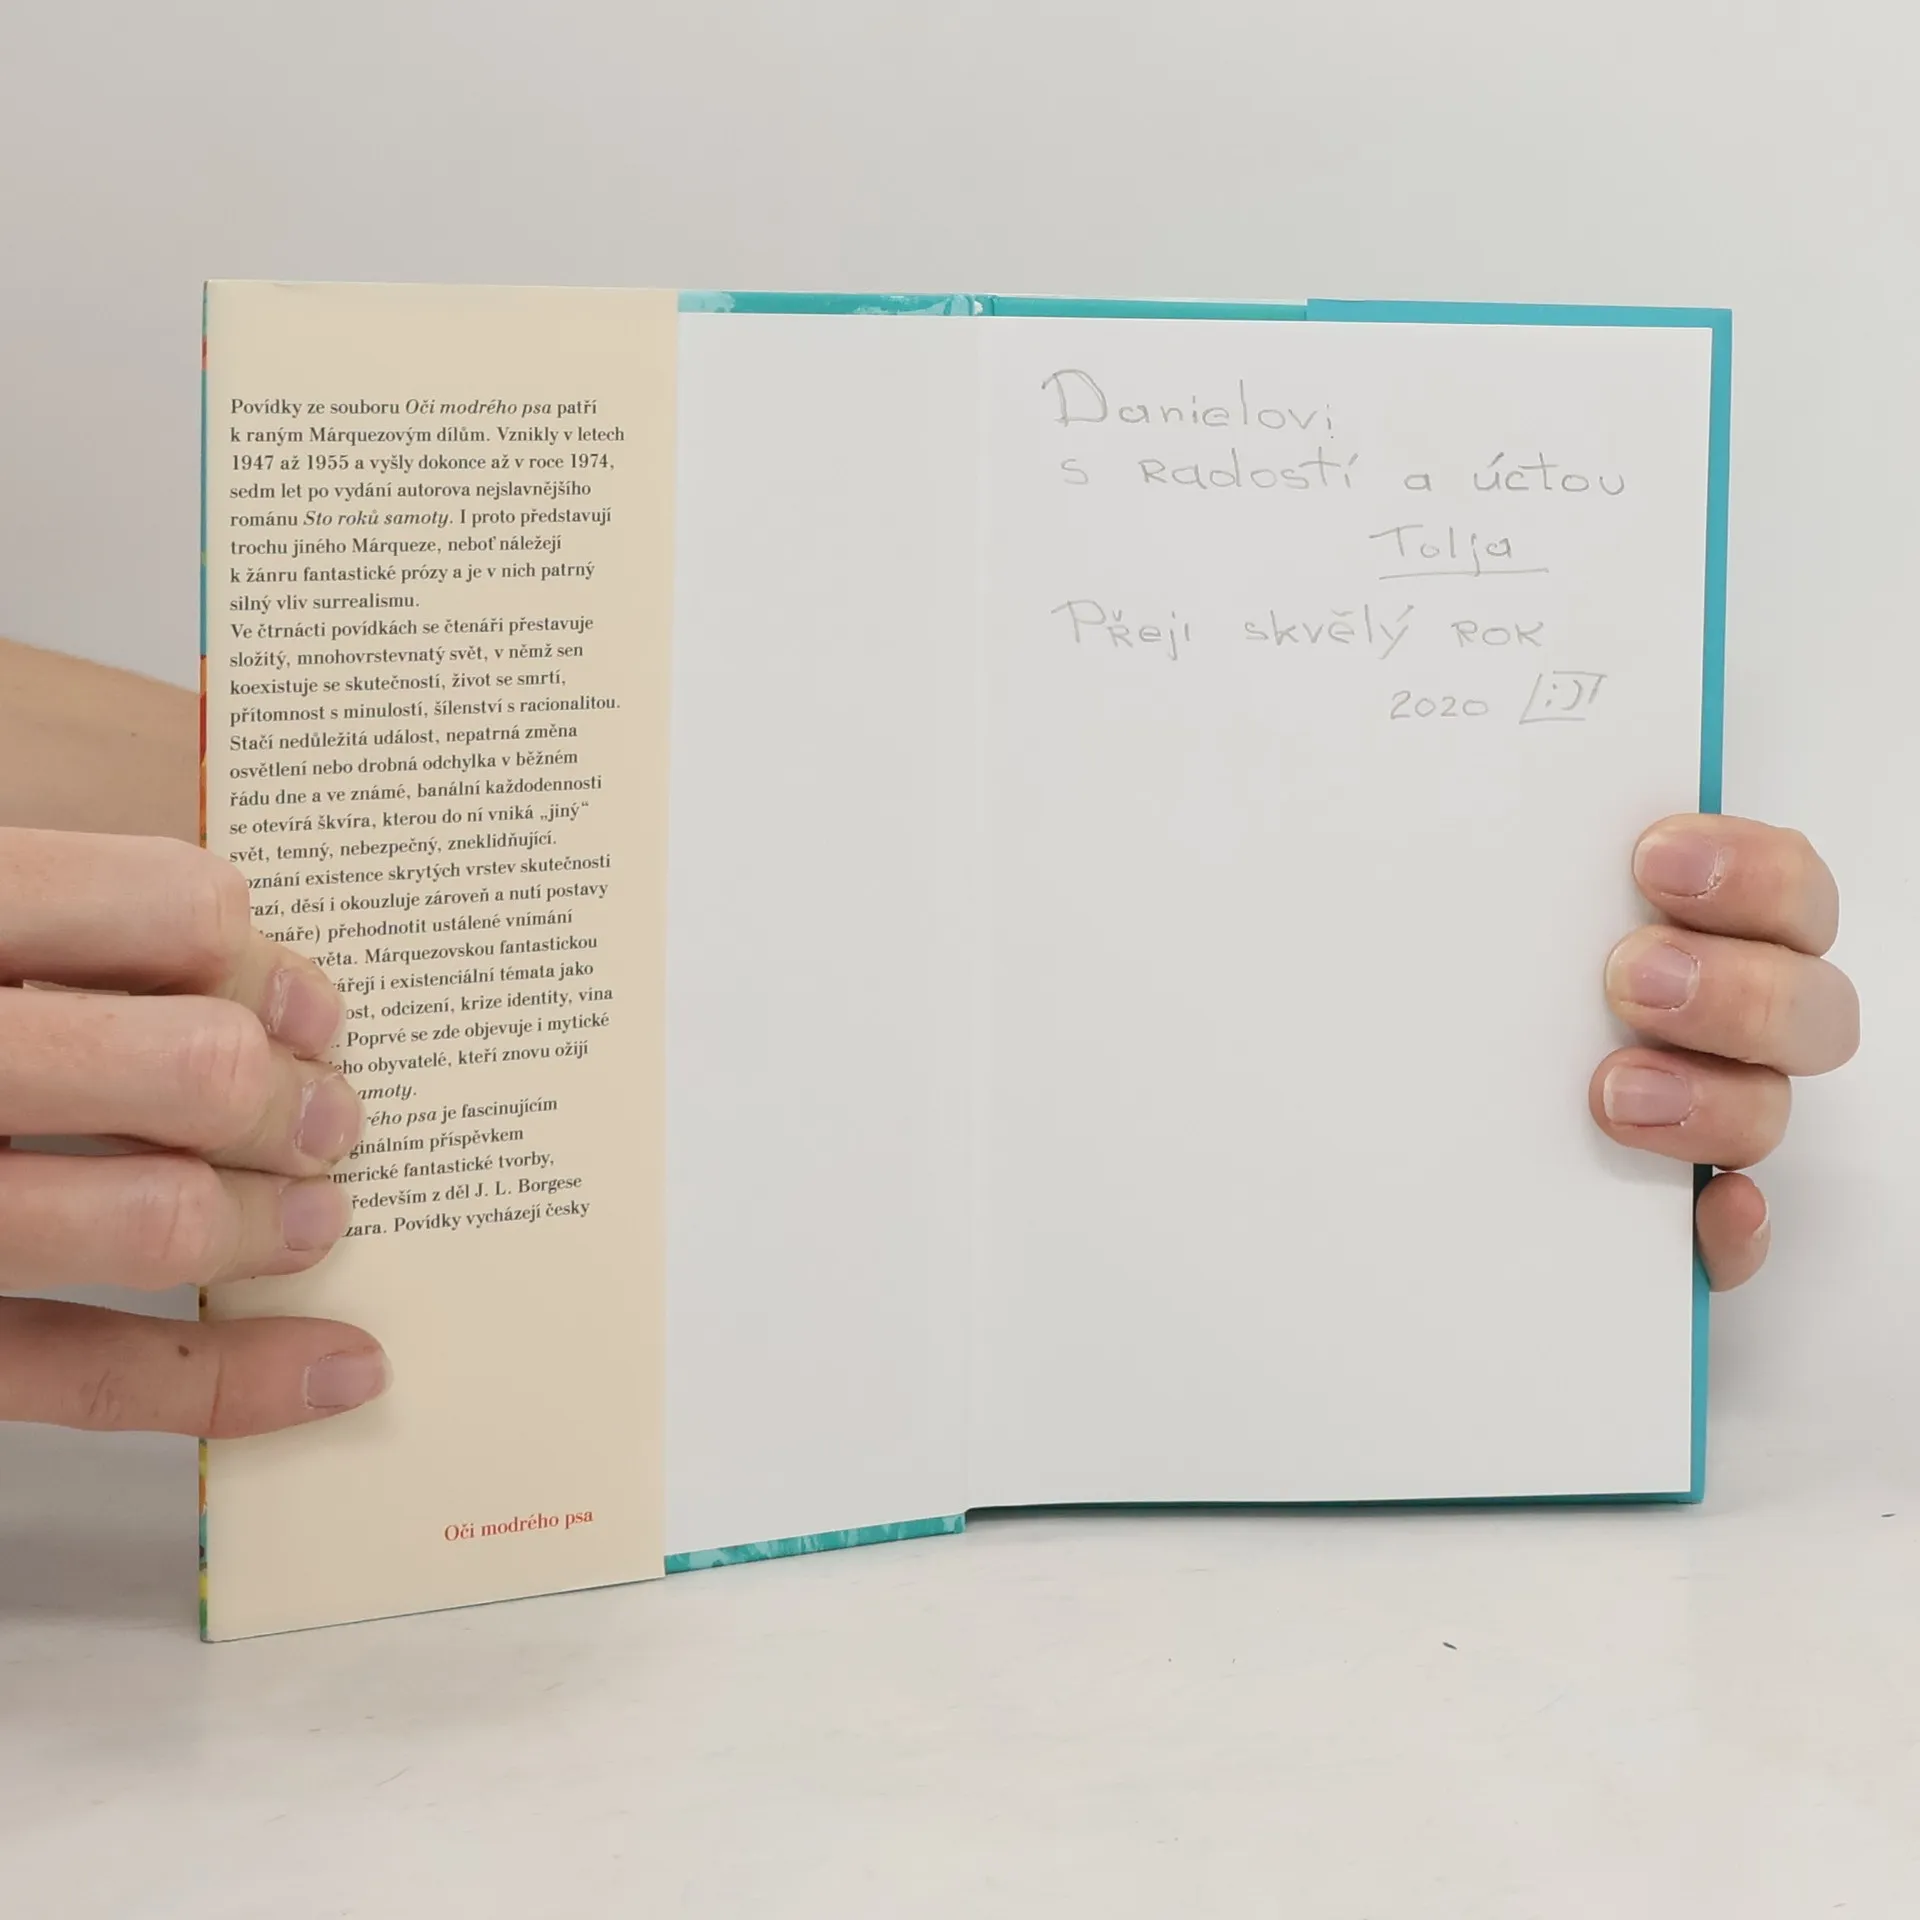 Povídky ze souboru Oči modrého psa patří
k raným Márquezovým dílům. Vznikly v letech
1947 až 1955 a vyšly dokonce až v roce 1974,
sedm let po vydání autorova nejslavnějšího
románu Sto roků samoty. I proto představují
trochu jiného Márqueze, neboť náležejí
k žánru fantastické prózy a je v nich patrný
silný vliv surrealismu.
Ve čtrnácti povídkách se čtenáři přestavuje
složitý, mnohovrstevnatý svět, v němž sen
koexistuje se skutečností, život se smrtí,
přítomnost s minulostí, šílenství s racionalitou.
Stačí nedůležitá událost, nepatrná změna
osvětlení nebo drobná odchylka v běžném
řádu dne a ve známé, banální každodennosti
se otevírá škvíra, kterou do ní vniká „jiný“
svět, temný, nebezpečný, zneklidňující.
existence skrytých vrstev skutečnosti
děsí i okouzluje zároveň a nutí postavy
přehodnotit ustálené vnímání
světa. Márquezovskou fantastickou
i existenciální témata jako
odcizení, krize identity, vina
Poprvé se zde objevuje i mytické
obyvatelé, kteří znovu ožijí
psa je fascinujícím
příspěvkem
fantastické tvorby,
z děl J. L. Borgese
Povídky vycházejí česky
Oči modrého psa
Danielovi
s Radostí a úctou
Tolja
Přeji skvělý rok
2020 :)